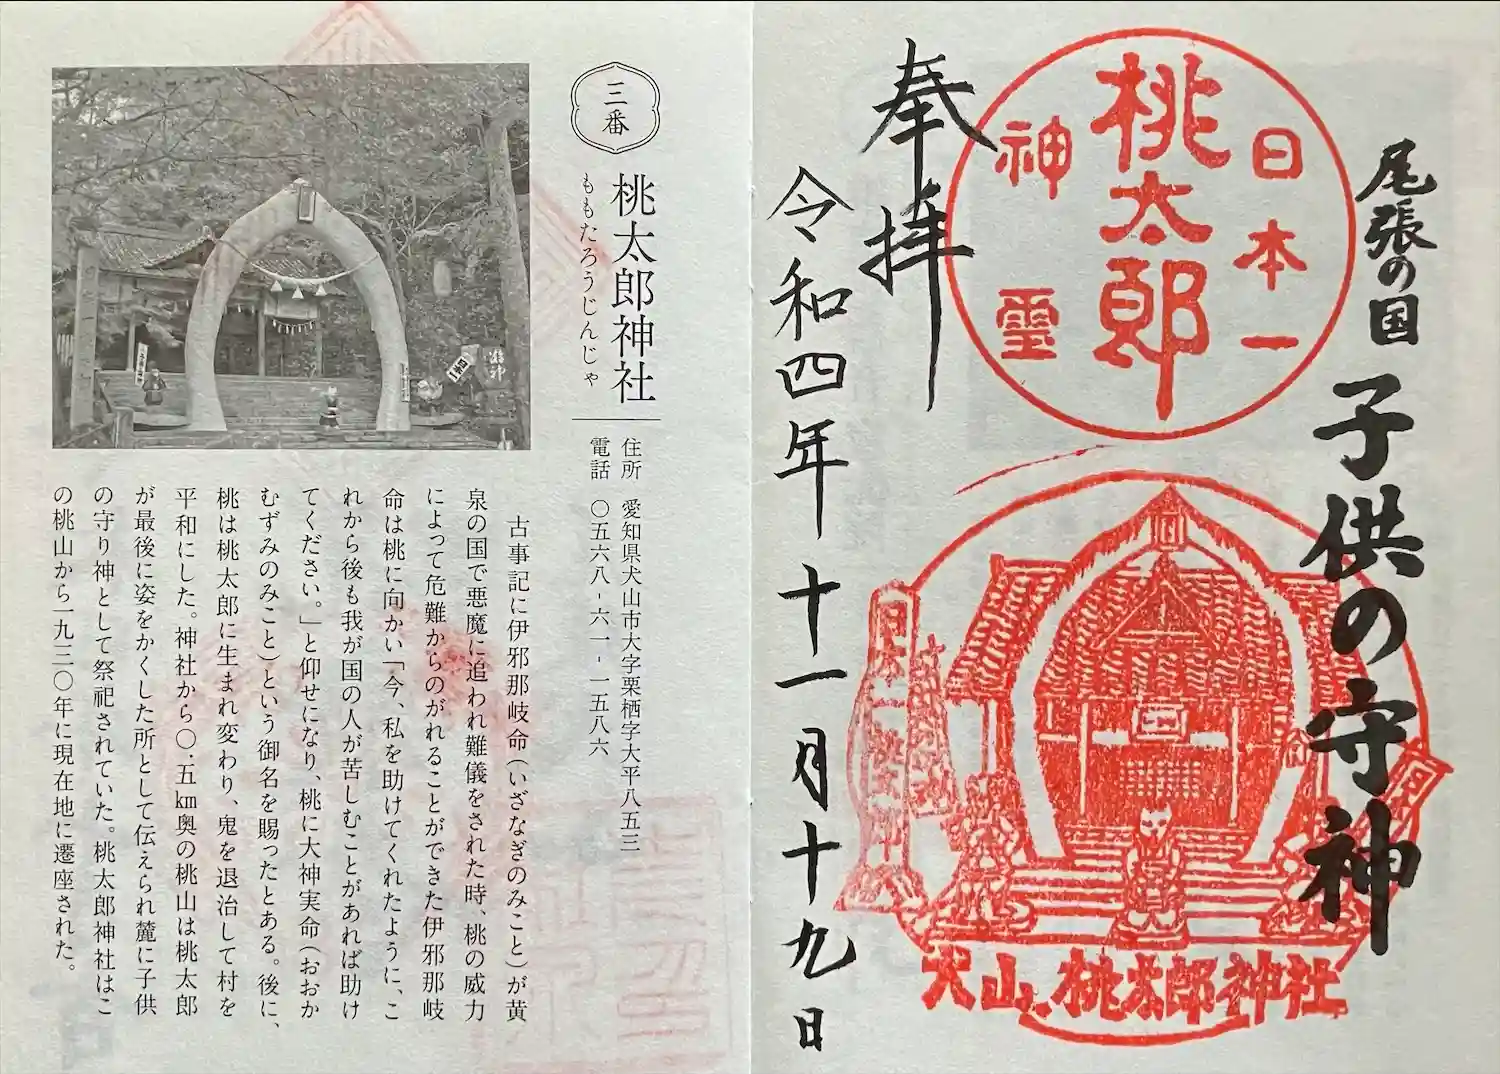 尾張の国
子供の守神
日本一
桃太郎
神霊
奉拝
令和四年十一月十九日
犬山、桃太郎神社
三番
桃太郎神社
ももたろうじんじゃ
住所 愛知県犬山市大字栗栖字大平八五三
電話 〇五六八-六一-一五八六
古事記に伊邪那岐命(いざなぎのみこと)が黄
泉の国で悪魔に追われ難儀をされた時、桃の威力
によって危難からのがれることができた伊邪那岐
命は桃に向かい「今、私を助けてくれたように、こ
れから後も我が国の人が苦しむことがあれば助け
てください。」と仰せになり、桃に大神実命(おおか
むずみのみこと)という御名を賜ったとある。後に、
桃は桃太郎に生まれ変わり、鬼を退治して村を
平和にした。神社から〇.五㎞奥の桃山は桃太郎
が最後に姿をかくした所として伝えられ麓に子供
の守り神として祭祀されていた。桃太郎神社はこ
の桃山から一九三〇年に現在地に遷座された。